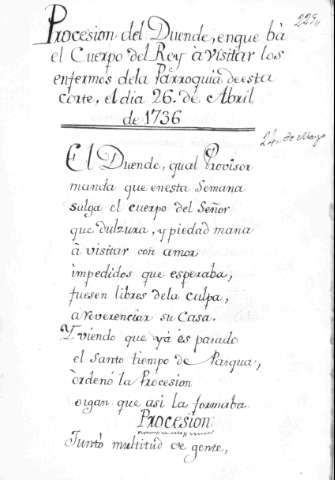 Procesion del Duende, en que bà
el Cuerpo del Rey à visitar los
enfermos dela Parroquia de esta
corte, el dia 26. de Abril
de 1736
225,,
24,, de Mayo
El Duende, qual Provisor
manda que en esta Semana
salga el cuerpo del Señor
que dulzura, y piedad mana
à visitar con amor
impedidos que esperaba,
fuesen libres dela culpa,
a reverenciar su Casa.
Y viendo que yà es pasado
el santo tiempo de Pasqua,
òrdenò la Procesion
oigan que asi la formaba.
Procesion
Juntò multitud de gente,